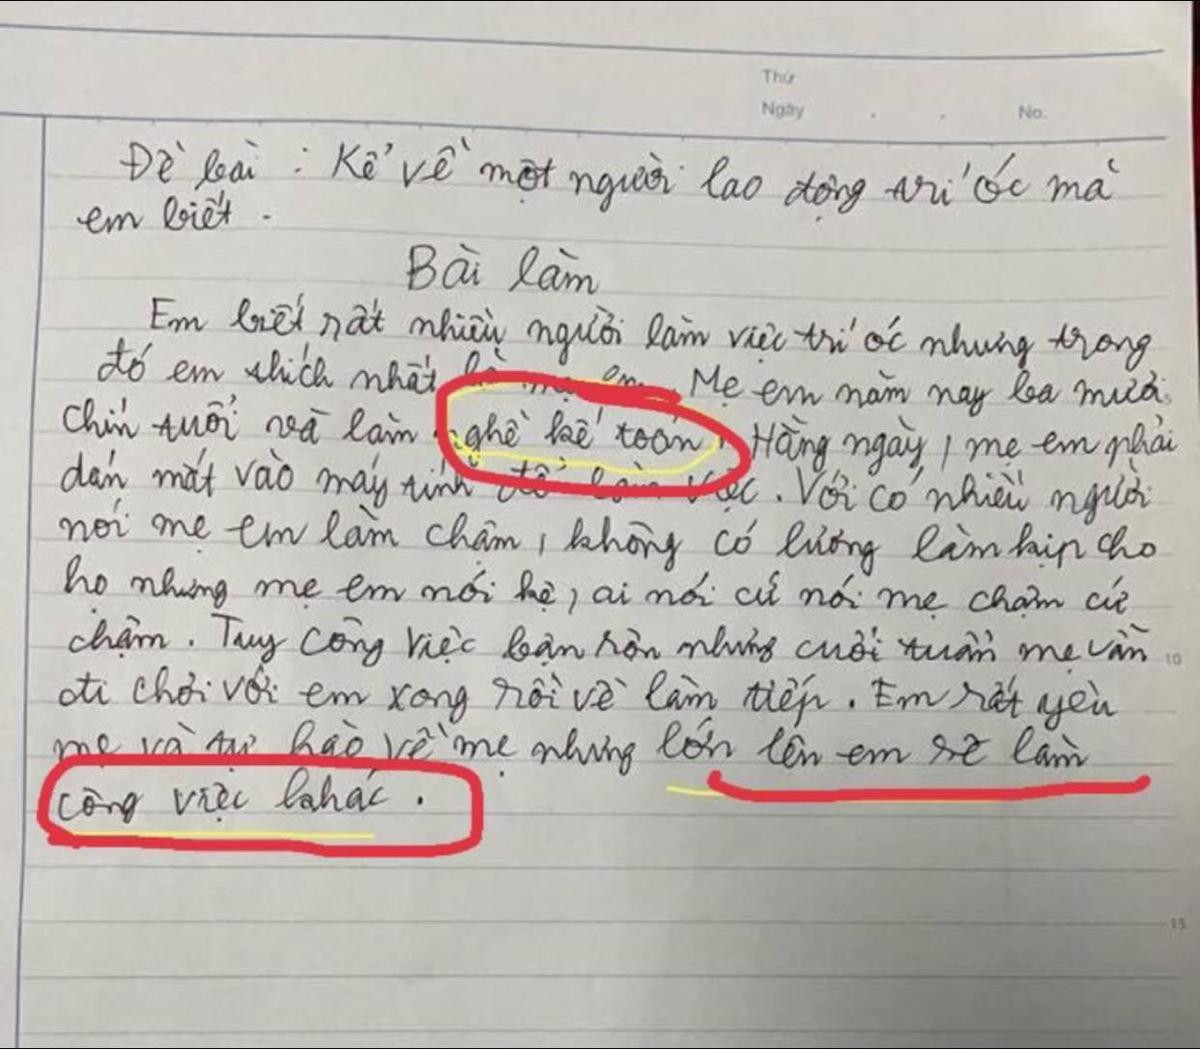 Thứ
Ngày . . No.
Đề bài : Kể về một người lao động trí óc mà
em biết .
Bài làm
Em biết rất nhiều người làm việc trí óc nhưng trong
đó em thích nhất là mẹ em. Mẹ em năm nay ba mươi
chín tuổi và làm nghề kế toán. Hằng ngày, mẹ em phải
dán mắt vào máy tính để làm việc. Với có nhiều người
nói mẹ em làm chậm, không có lương làm kịp cho
họ nhưng mẹ em nói kệ, ai nói cứ nói mẹ chậm cứ
chậm. Tuy công việc bận rộn nhưng cuối tuần mẹ vẫn 10
đi chơi với em xong rồi về làm tiếp. Em rất yêu
mẹ và tự hào về mẹ nhưng lớn lên em sẽ làm
công việc khác.
15